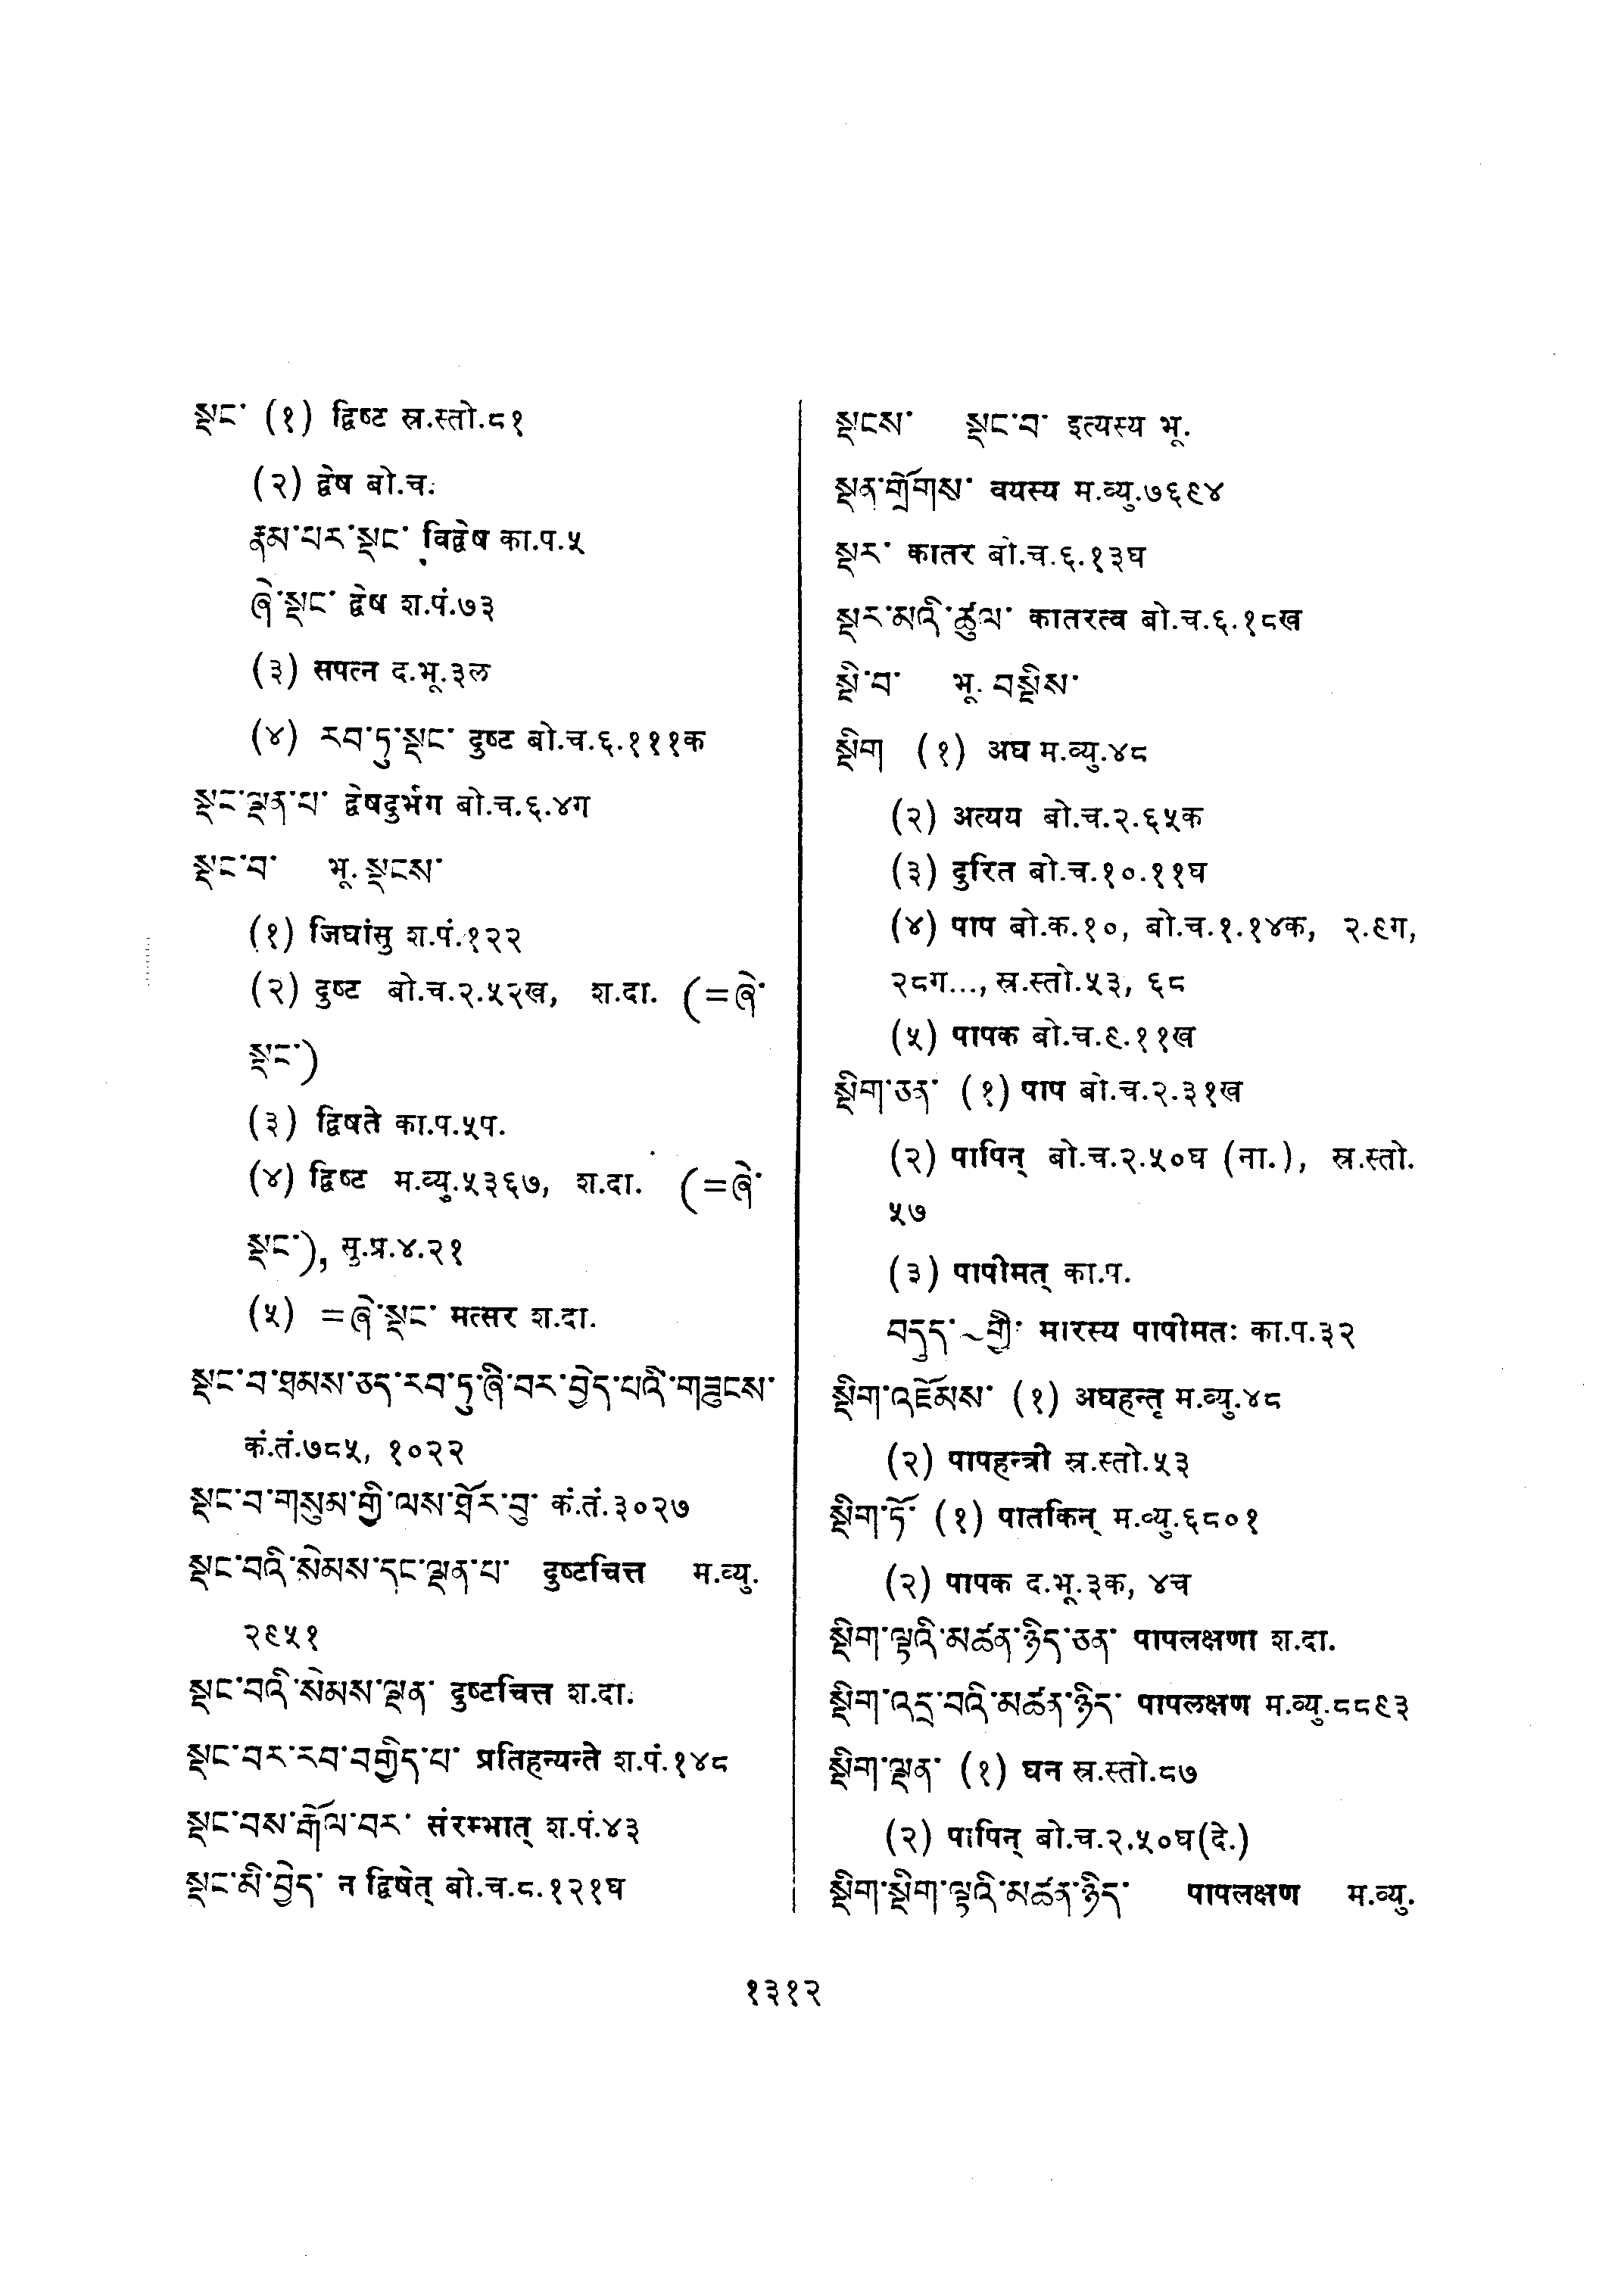 སྡང་ (१) द्विष्ट स्र.स्तो.८१
(२) द्वेष बो.च.
རྣམ་པར་སྡང་ विद्वेष का.प.५
ཞེ་སྡང་ द्वेष श.पं.७३
(३) सपत्न द.भू.३ल
(४) རབ་ཏུ་སྡང་ दुष्ट बो.च.६.१११क
སྡང་ལྡན་པ་ द्वेषदुर्भग बो.च.६.४ग
སྡང་བ་ भू. སྡངས་
(१) जिघांसु श.पं.१२२
(२) दुष्ट बो.च.२.५२ख, श.दा. (=ཞེ་
སྡང་)
(३) द्विषते का.प.५प.
(४) द्विष्ट म.व्यु.५३६७, श.दा. (=ཞེ་
སྡང་), सु.प्र.४.२१
(५) =ཞེ་སྡང་ मत्सर श.दा.
སྡང་བ་ཐམས་ཅད་རབ་ཏུ་ཞི་བར་བྱེད་པའི་གཟུངས་
कं.तं.७८५, १०२२
སྡང་བ་གསུམ་གྱི་ལས་ཐོར་བུ་ कं.तं.३०२७
སྡང་བའི་སེམས་དང་ལྡན་པ་ दुष्टचित्त म.व्यु.
२९५१
སྡང་བའི་སེམས་ལྡན་ दुष्टचित्त श.दा.
སྡང་བར་རབ་བགྱིད་པ་ प्रतिहन्यन्ते श.पं.१४८
སྡང་བས་རྒོལ་བར་ संरम्भात् श.पं.४३
སྡང་མི་བྱེད་ न द्विषेत् बो.च.८.१२१घ
སྡངས་ སྡང་བ་ इत्यस्य भू.
སྡན་གྲོགས་ वयस्य म.व्यु.७६९४
སྡར་ कातर बो.च.६.१३घ
སྡར་མའི་ཚུལ་ कातरत्व बो.च.६.१८ख
སྡི་བ་ भू. བསྡིས་
སྡིག (१) अघ म.व्यु.४८
(२) अत्यय बो.च.२.६५क
(३) दुरित बो.च.१०.११घ
(४) पाप बो.क.१०, बो.च.१.१४क, २.९ग,
२८ग..., स्र.स्तो.५३, ६८
(५) पापक बो.च.९.११ख
སྡིག་ཅན་ (१) पाप बो.च.२.३१ख
(२) पापिन् बो.च.२.५०घ (ना.), स्र.स्तो.
५७
(३) पापीमत् का.प.
བདུད་~གྱི་ मारस्य पापीमतः का.प.३२
སྡིག་འཇོམས་ (१) अघहन्तृ म.व्यु.४८
(२) पापहन्त्री स्र.स्तो.५३
སྡིག་ཏོ་ (१) पातकिन् म.व्यु.६८०१
(२) पापक द.भू.३क, ४च
སྡིག་ལྟའི་མཚན་ཉིད་ཅན་ पापलक्षणा श.दा.
སྡིག་འདྲ་བའི་མཚན་ཉིད་ पापलक्षण म.व्यु.८८९३
སྡིག་ལྡན་ (१) घन स्र.स्तो.८७
(२) पापिन् बो.च.२.५०घ(दे.)
སྡིག་སྡིག་ལྟའི་མཚན་ཉིད་ पापलक्षण म.व्यु.
१३१२